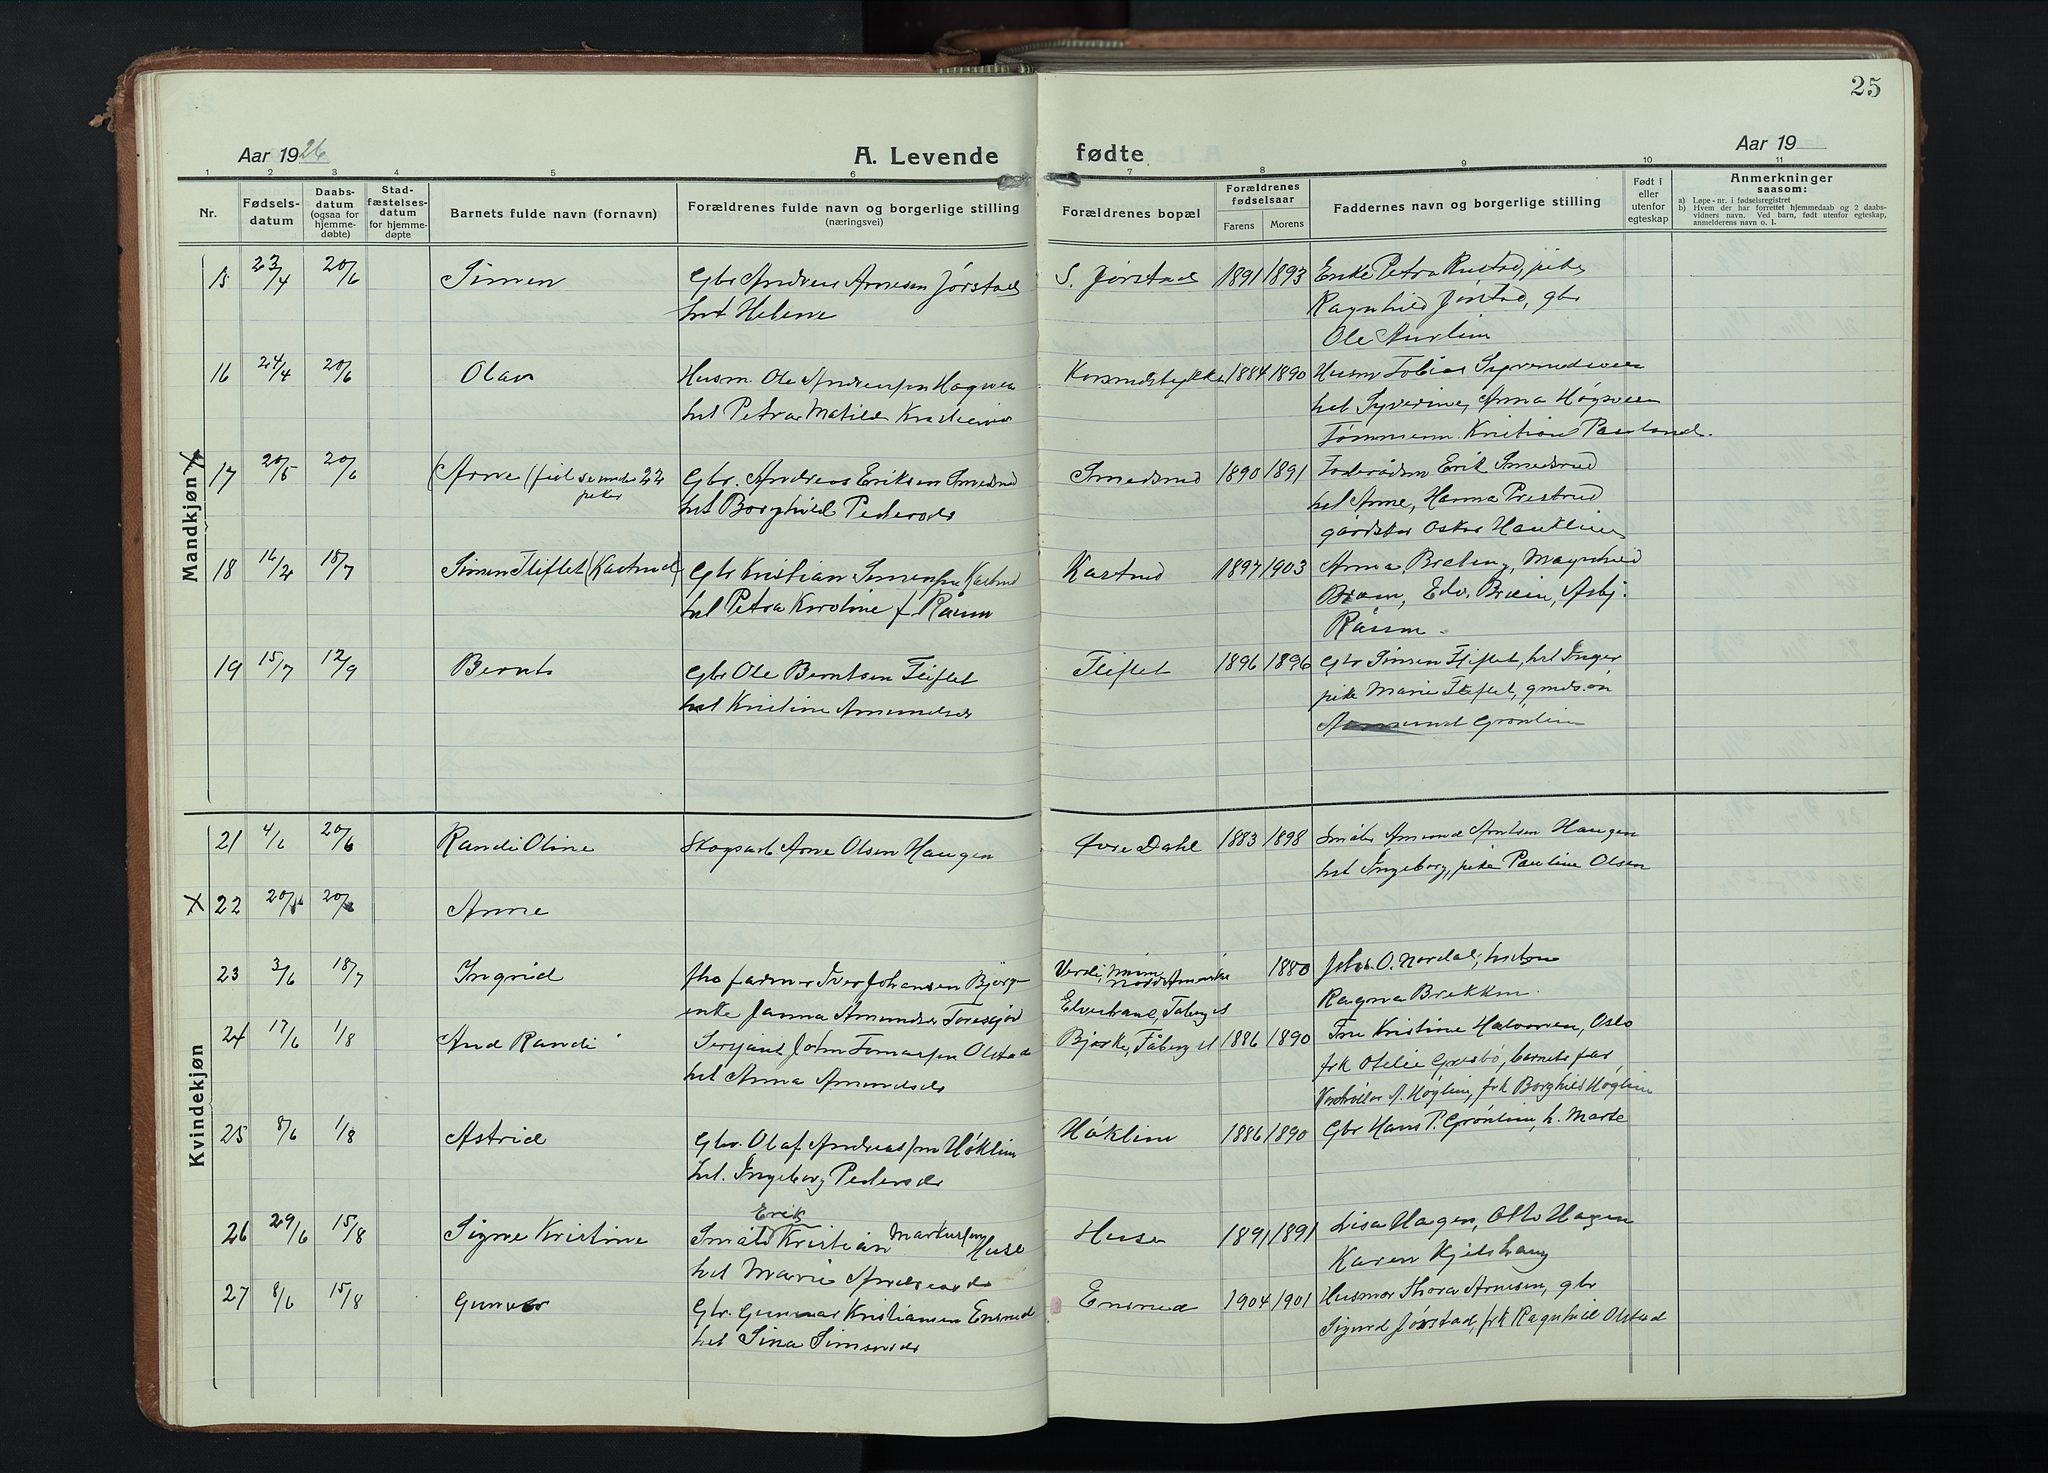 25
Aar 1926
A. Levende
fødte
Aar 19
1 2 3 4 5 6 7 8 9 10 11
Nr.
Fødsels-
datum
Daabs-
datum
(ogsaa for
hjemme-
døbte)
Stad-
fæstelses-
datum
for hjemme-
døpte
Barnets fulde navn (fornavn)
Forældrenes fulde navn og borgerlige stilling
(næringsvei)
Forældrenes bopæl
Forældrenes
fødselsaar
Farens Morens
Faddernes navn og borgerlige stilling
Født i
eller
utenfor
egteskap
Anmerkninger
saasom:
a) Løpe-nr. i fødselsregistret
b) Hvem der har forrettet hjemmedaab og 2 daabs-
vidners navn. Ved barn, født utenfor egteskap,
anmelderens navn o. l.
Mandkjøn
15 23/4 20/6 Simen Gbr Andreas Arnesen Jørstad S. Jørstad 1891 1893 Enke Petra Rustad, pike
hst Helene Ragnhild Jørstad, gbr
Ole Aurlien
16 24/4 20/6 Olav Husm. Ole Andreassen Høgsveen 1884 1890 Husm Tobias Syverudsveen
hst Petra Matilde hst Syverine, Anna Høgsveen
Tømmerm. Kristian Paulund.
X 17 20/5 20/6 (Arne (feil se under 22
piker Gbr. Andreas Eriksen Smedsrud Smedsrud 1890 1891 Erik Smedsrud
hst Borghild Pedersdr hst Anne, Hanna Prestrud
Oskar Hauklien
18 16/2 18/7 Simen Fliflet (Kastrud) Gbr Kristian Simensen Kastrud Kastrud 1897 1903 Anna Magnhild
hst Petra Karoline f Råum Edv. Asbj.
Råum.
19 15/7 12/9 Bernt Gbr Ole Berntsen Fliflet Fliflet 1896 1896 Gbr Simen Fliflet, hst Inger
hst Kristine Amundsdr pike Marie Fliflet, gmds.øn
Amund Grønlien
Kvindekjøn
21 4/6 20/6 Randi Oline Skogsarb Arne Olsen Haugen Øvre Dahl 1883 1898 Småbr Amund Arntsen Haugen
hst Ingeborg, pike Pauline Olsen
X 22 20/5 20/6 Anne
23 3/6 18/7 Ingrid farmer Iver Johansen 1880 O. Nordal,
enke Janna Amundsdr Ragna Brekken.
24 17/6 1/8 Aud Randi Serjant John Tomassen Olstad Bjørke, Fåberg st 1886 1890 Fru Kristine Halvorsen, Oslo
hst Anna Amundsdr frk Otelie barnets far
A. Høglien, frk Borghild Høglien
25 8/6 1/8 Astrid Gbr. Olaf Andreassen Høklien Høklien 1886 1890 Gbr Hans P. Grønlien, h. Marte
hst. Ingeborg Pedersdr
26 29/6 15/8 Signe Kristine Småbr Erik Kristian Markussen Huse Huse 1891 1891 Lisa Hagen, Otto Hagen
hst Marie Andreasdr Karen Kjelshaug
27 8/6 15/8 Gunvor Gbr. Gunnar Kristiansen Ensrud Ensrud 1904 1901 Husmor Thora Arnesen, gbr
hst Sina Simensdr Sigurd Jørstad, frk Ragnhild Olstad